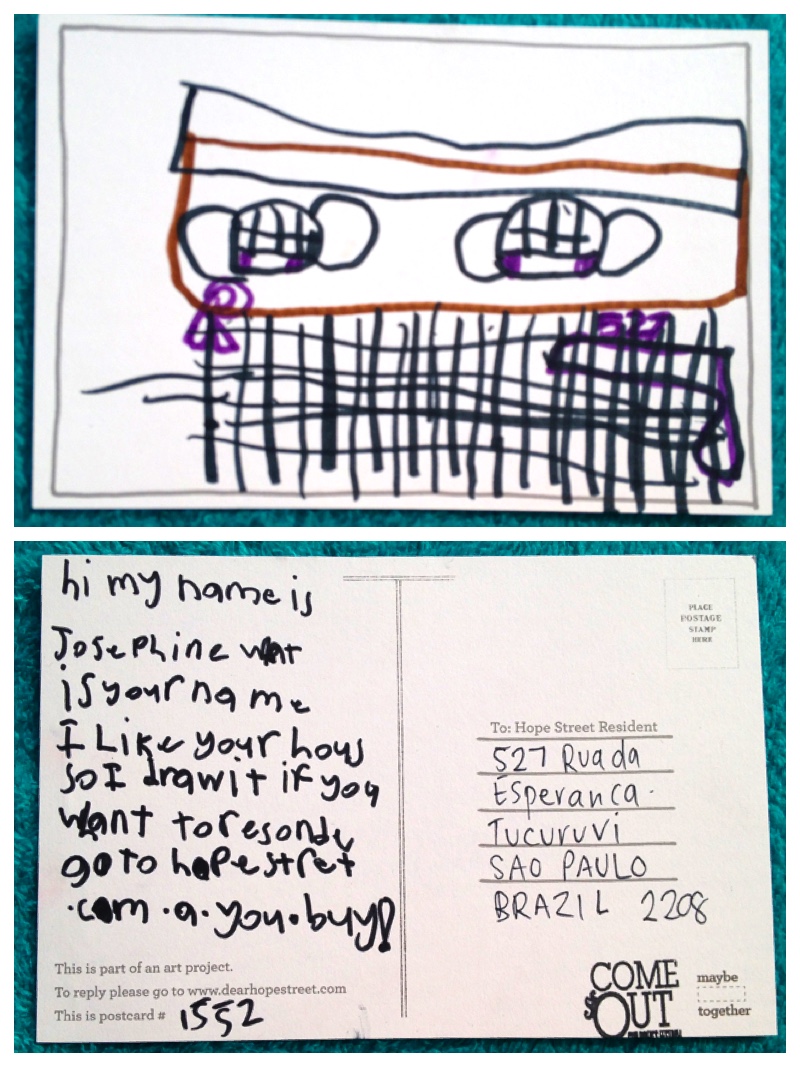 527
hi my name is
Josephine wat
is your name
I Like your hous
so I draw it if you
want to resonde
go to hopestret
.com.a.you.buy!
This is part of an art project.
To reply please go to www.dearhopestreet.com
This is postcard # 1552
PLACE
POSTAGE
STAMP
HERE
To: Hope Street Resident
527 Rua da
Esperanca.
Tucuruvi
SAO PAULO
BRAZIL 2208
COME
OUT
maybe
together